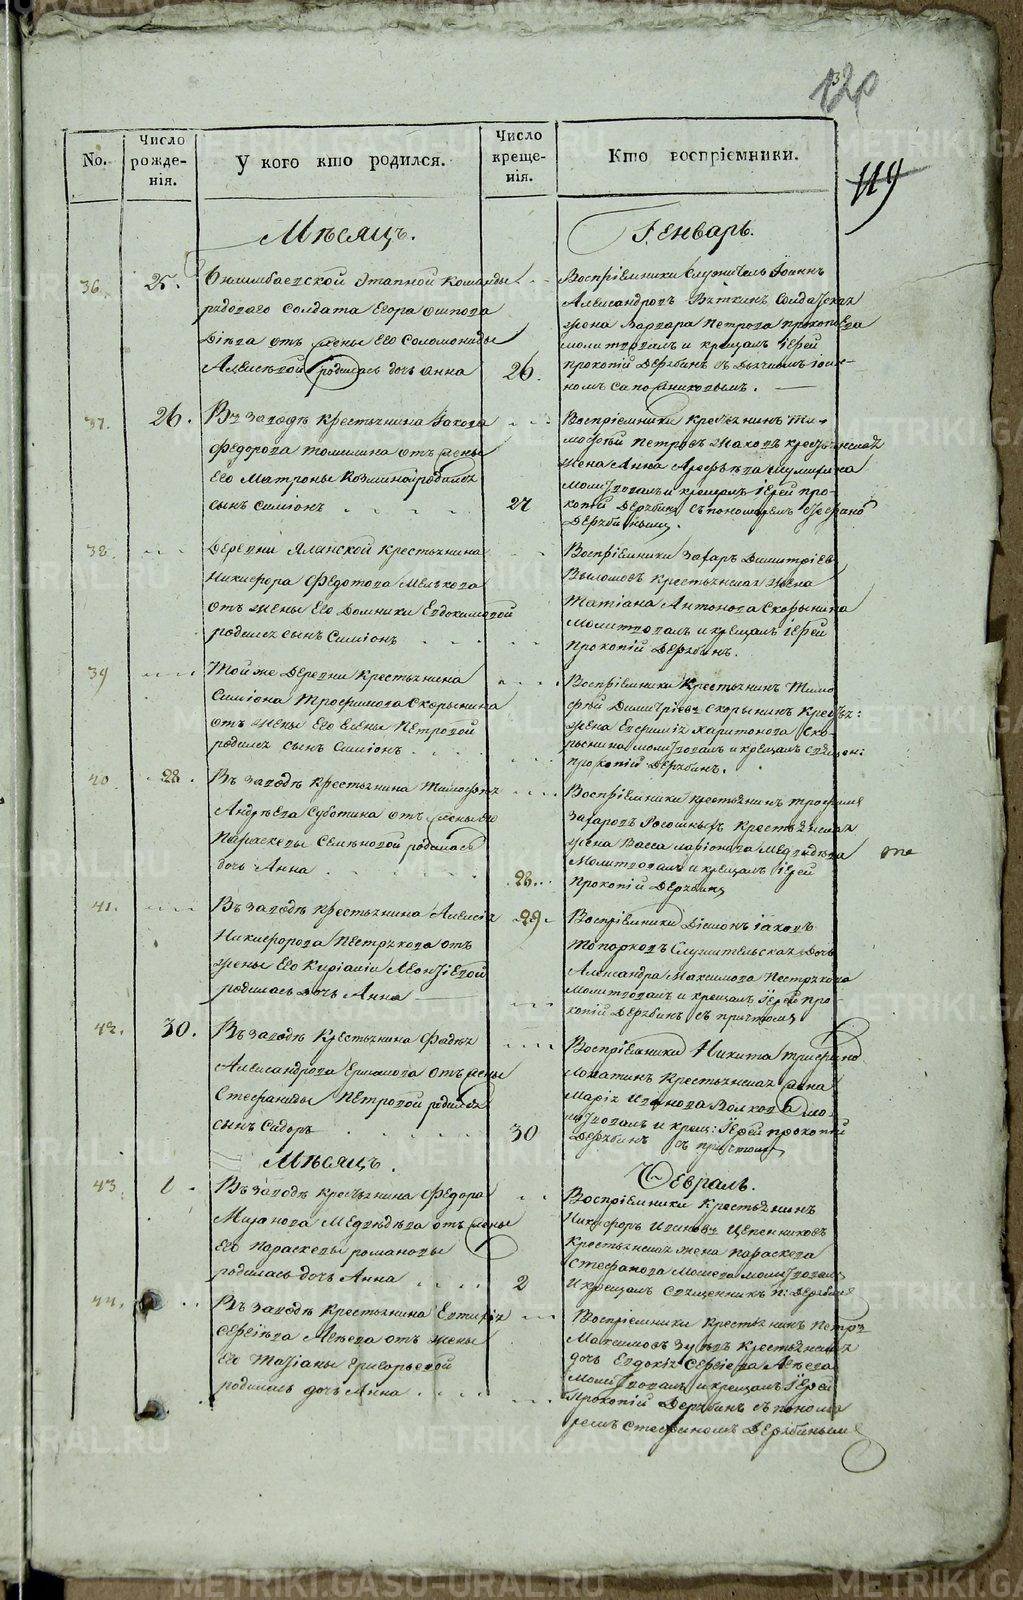 120
119
No.
Число рожде-нія.
У кого кто родился.
Число креще-нія.
Кто воспріемники.
Мѣсяцъ.
Генварь.
36.
25.
Билимбаевской Этапной Команды
рядоваго солдата Егора
отъ жены Его Соломониды
Алексѣевой родилась дочь Анна
26.
Воспріемники Служитель Іоаннъ
Александровъ Вяткинъ Солдатская
жена Варвара Петрова
молитвовалъ и крещалъ іерей
Прокопій Дерябинъ съ дьячкомъ Іоан-
номъ Сапожниковымъ.
37.
26.
Въ заводѣ Крестьянина Іакова
Федорова Томилина отъ жены
Его Матроны Козминой родился
сынъ Симіонъ
27
Воспріемники Крестьянинъ Ти-
мофей Петровъ Махотъ крестьянская
жена Анна Арефьева
молитвовалъ и крещалъ іерей Про-
копій Дерябинъ съ пономаремъ Стефано
Дерябинымъ.
38.
Деревни Яланской Крестьянина
Никифора Федотова Мелкова
отъ жены Его Домники Евдокимовой
родился сынъ Симіонъ
Воспріемники Захаръ Димитріев
крестьянская жена
Татіана Антонова Скорынина
молитвовалъ и крещалъ іерей
Прокопій Дерябинъ.
39
Той же Деревни Крестьянина
Симіона Трофимова Скорынина
отъ жены Его Елены Петровой
родился сынъ Симіонъ
Воспріемники Крестьянинъ Тимо
фей Димитріевъ Скорынинъ Крестья:
жена Евфимія Харитонова Ско-
рынина молитвовалъ и крещалъ Священ:
Прокопій Дерябинъ.
40
28.
Въ заводѣ Крестьянина Тимофея
Андрѣева Суботина отъ жены его
Параскевы Семеновой родилась
дочь Анна
28.
Воспріемники крестьянинъ Трофимъ
Захаровъ Росошныхъ Крестьянская
жена Васса Ларіонова Медвѣдева
молитвовалъ и крещалъ іерей
Прокопій Дерябинъ
41.
Въ заводѣ Крестьянина Алексія
Никифорова Пестрякова отъ
жены Его Киріакіи Леонтіевой
родилась дочь Анна
29
Воспріемники Діаконъ Іаковъ
Топорковъ Служительская Дочь
Александра Максимова Пестрякова
молитвовалъ и крещалъ іерей Про-
копій Дерябинъ съ причтомъ
42.
30.
Въ заводѣ Крестьянина Фадѣя
Александрова Ермакова отъ жены
Стефаниды Петровой родился
сынъ Сидоръ
30
Воспріемники Никита Трифоно
Лопатинъ Крестьянская жена
Марія Иванова Волкова мо-
литвовалъ и крещ: Іерей Прокопій
Дерябинъ съ причтомъ
Мѣсяцъ.
Февраль.
43.
1.
Въ заводѣ крестьянина Федора
Миронова Медвѣдева отъ жены
Его Параскевы Романовы
родилась дочь Анна
2
Воспріемники Крестьянинъ
Никифоръ Ивановъ Щепенниковъ
Крестьянская жена Параскева
Стефанова молитвовалъ
и крещалъ Священникъ П: Дерябинъ
44.
Въ заводѣ Крестьянина Евтихія
Сергіева Аѣева отъ жены
Его Татіаны Григорьевой
родилась дочь Анна
Воспріемники Крестьянинъ Петръ
Максимовъ Зуевъ Крестьянская
дочь Евдокія Сергіева Аѣева
молитвовалъ и крещалъ Іерей
Прокопій Дерябинъ съ понома
ремъ Стефаномъ Дерябинымъ
METRIKI.GASO-URAL.RU